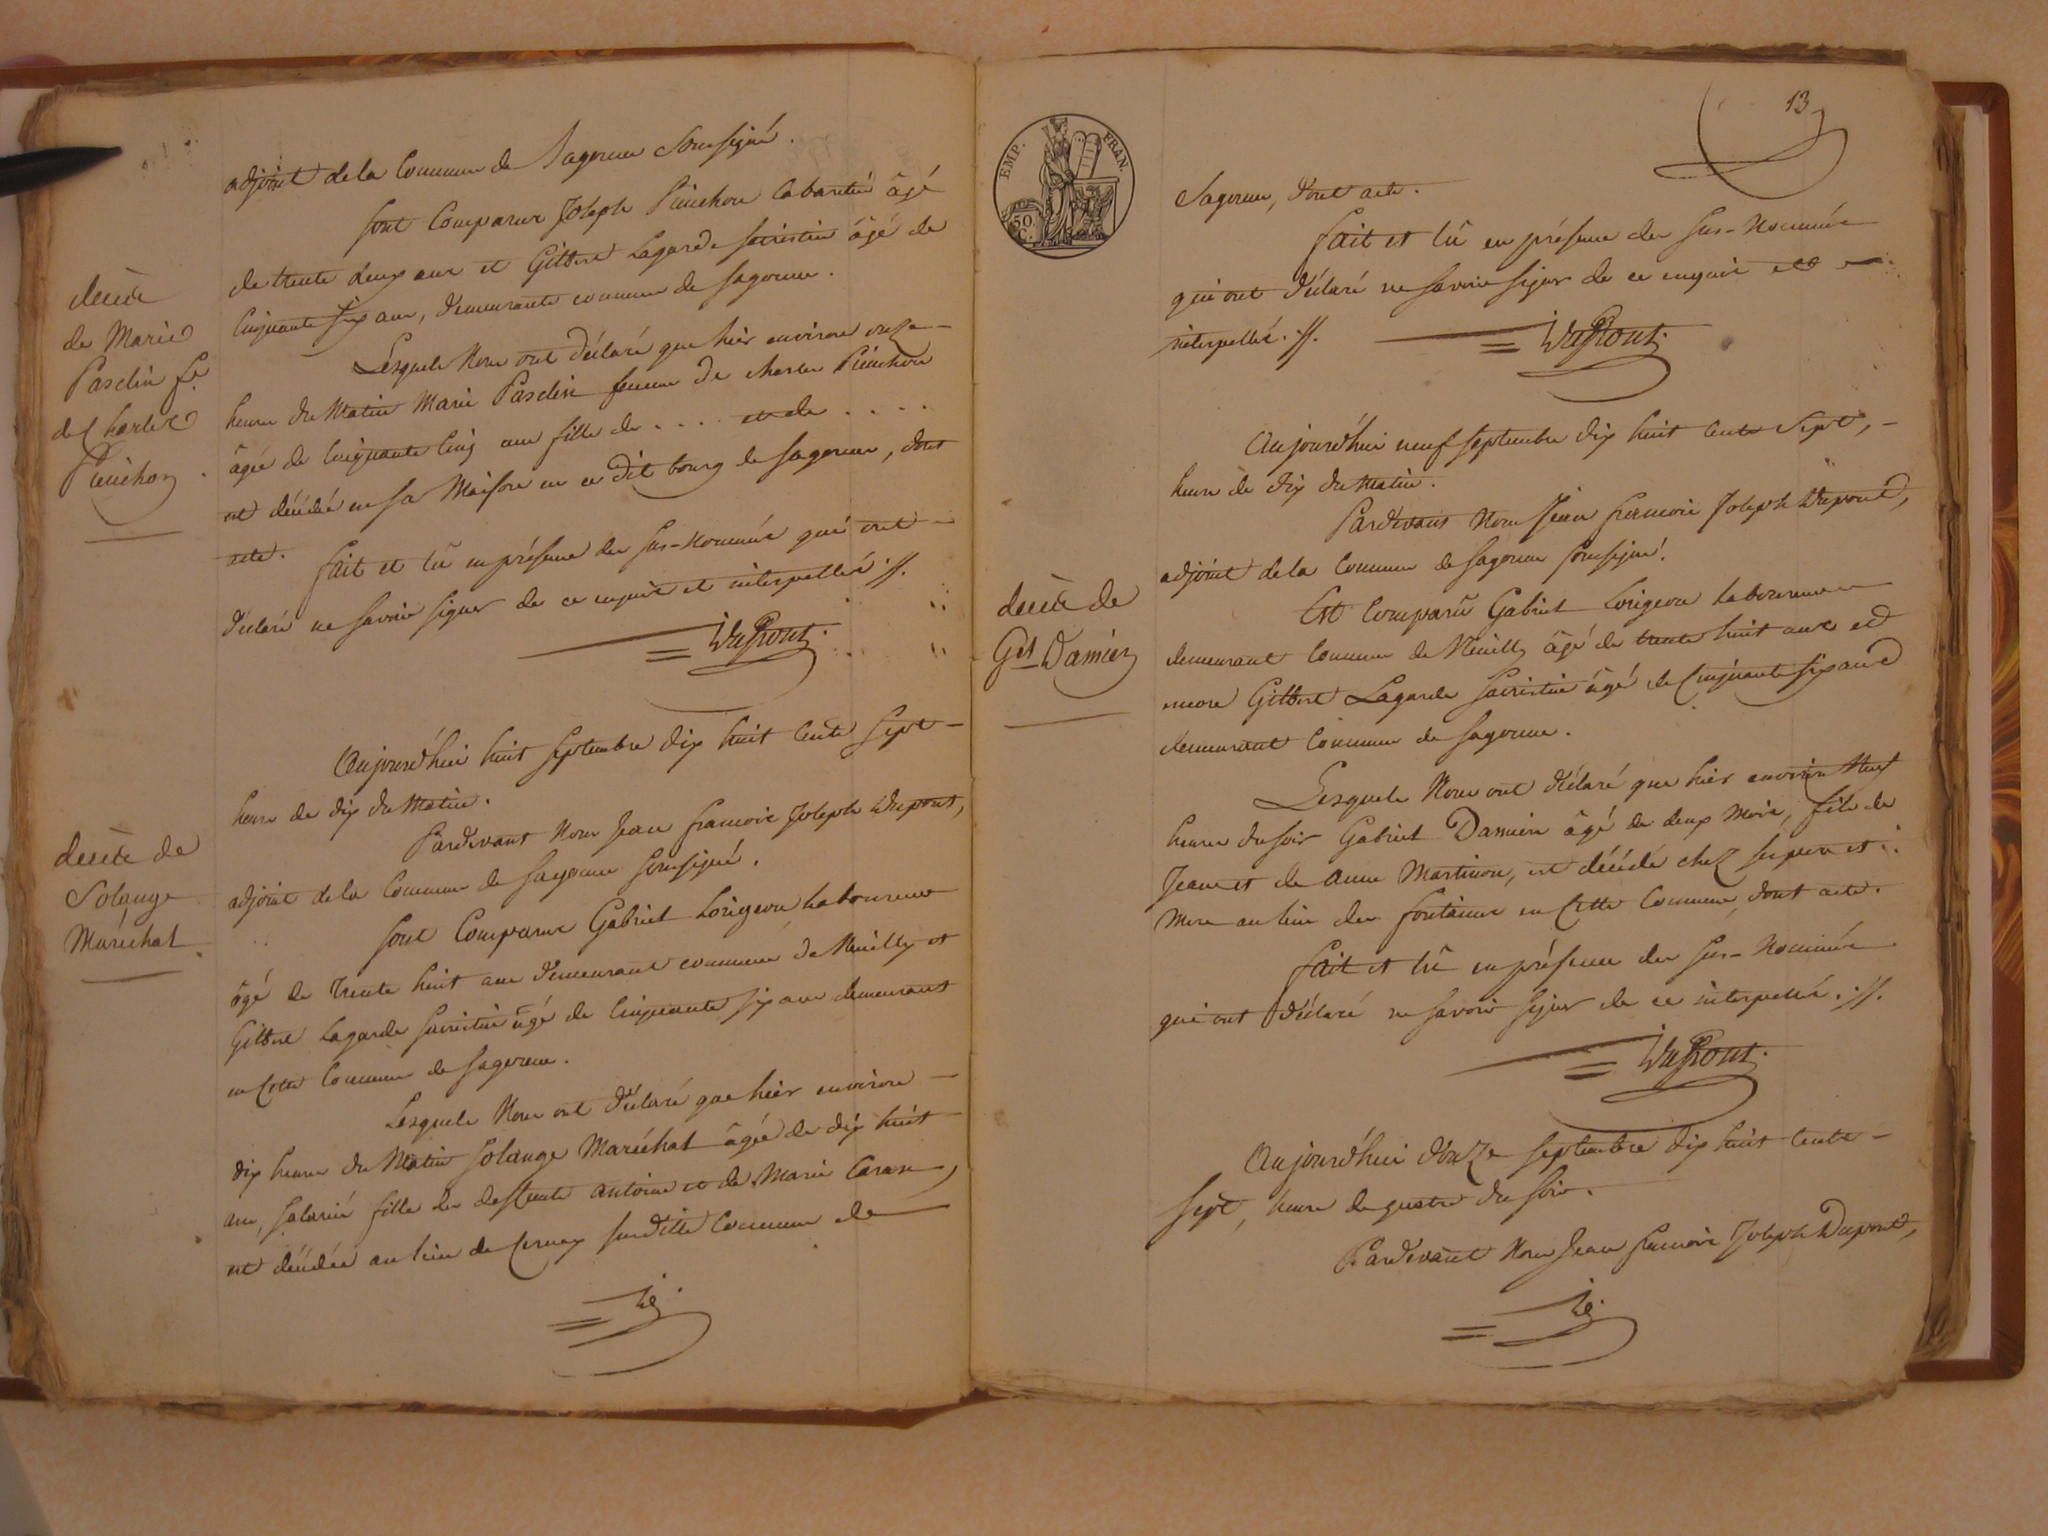 adjoint de la Commune de Sagonne Soussigné.
Sont Comparus Joseph Pinchon Cabartié âgé
de trente deux ans et Gilbert Lagarde sacristin âgé de
Cinquante six ans, demeurants commune de Sagonne.
Lesquels Nous ont déclaré que hier environ onze
heures du Matin Marie Pasdin femme de charles Pinchon
âgée de Cinquante cinq ans fille de . . . . et de . . . .
est décédée en sa Maison en ce dit bourg de Sagonne, dont
acte.
fait et lû en présence des sus-nommés qui ont
déclaré ne savoir signer de ce enquis et interpellés ://.
DuPont.
décès
de Marie
Pasdin fe.
de Charles
Pinchon
Aujourd'hui huit septembre dix huit Cents Sept
heure de dix du Matin.
Pardevant Nous Jean francois Joseph Dupont,
adjoint de la Commune de Sagonne soussigné.
sont Comparus Gabriel Lorigeon Laboureur
âgé de trente huit ans demeurant commune de Neuilly et
Gilbert Lagarde Sacristin âgé de Cinquante six ans demeurant
en Cette Commune de Sagonne.
Lesquels Nous ont déclaré que hier environ
dix heures du Matin Solange Maréchal âgée de dix huit
ans, fille de antoine et de Marie
est décédée au lieu de susdite Commune de
décès de
Solange
Maréchal
13
EMP. FRAN.
50 C.
Sagonne, dont acte.
fait et lû en présence des sus-nommés
qui ont déclaré ne savoir signer de ce enquis et
interpellés.//.
DuPont.
Aujourd'hui neuf septembre dix huit Cents Sept,
heure de dix du Matin.
Pardevant Nous Jean francois Joseph Dupont,
adjoint de la Commune de Sagonne soussigné.
Est Comparû Gabriel Lorigeon Laboureur
demeurant Commune de Neuilly âgé de trente huit ans et
encore Gilbert Lagarde Sacristin âgé de Cinquante six ans
demeurant Commune de Sagonne.
Lesquels Nous ont déclaré que hier environ Neuf
heures du soir Gabriel Damien âgé de deux Mois, fils de
Jean et de anne Martinon, est décédé chez ses pere et
Mere au lieu des fontaines en Cette Commune, dont acte.
fait et lû en présence des sus-Nommés
qui ont déclaré ne savoir signer de ce interpellés.://.
DuPont.
décès de
Gel Damien
Aujourd'hui douze septembre dix huit Cents
Sept, heure de quatre du soir.
Pardevant Nous Jean francois Joseph Dupont,